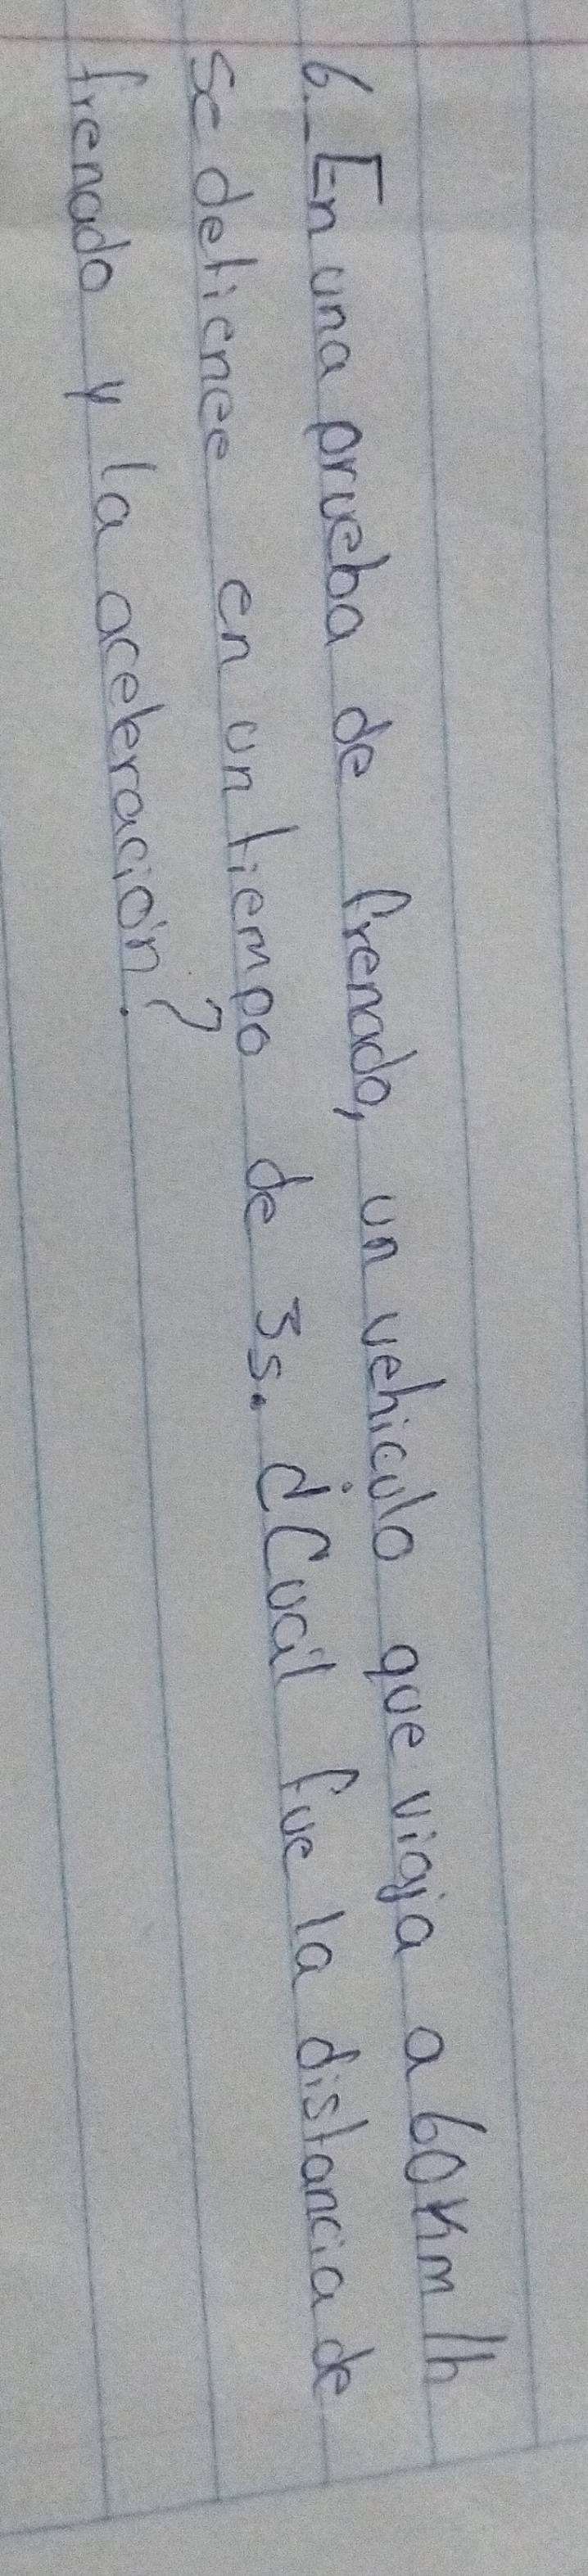 6._ En una prueba de frenado, un vehiculo que viaja a 60 Km/h
se detienee en un tiempo de 3s. ¿Cuál fue la distancia de
frenado y la aceleración?